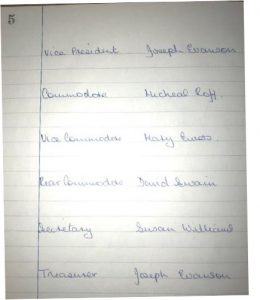 5
Vice President Joseph Evanson
Commodore Micheal
Vice Commodore Mary
Rear Commodore David Swain
Secretary Susan Williams
Treasurer Joseph Evanson